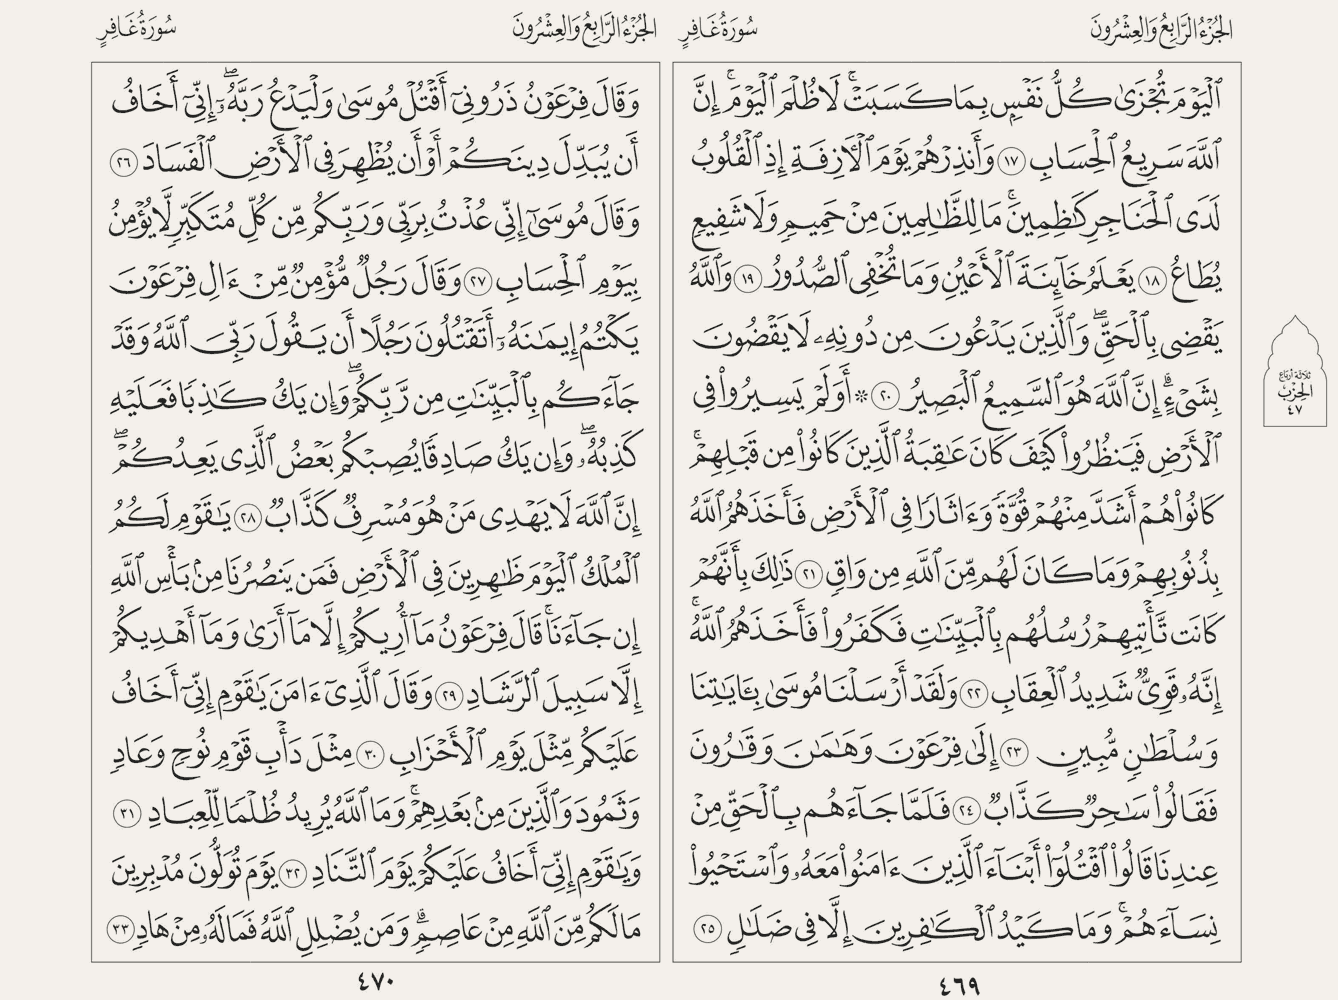 الجُزْءُ الرَّابِعُ وَالعِشْرُونَ
سُورَةُ غَافِرٍ
ٱلْيَوْمَ تُجْزَىٰ كُلُّ نَفْسٍۭ بِمَا كَسَبَتْۚ لَا ظُلْمَ ٱلْيَوْمَۚ إِنَّ
ٱللَّهَ سَرِيعُ ٱلْحِسَابِ ١٧ وَأَنذِرْهُمْ يَوْمَ ٱلْأَزِفَةِ إِذِ ٱلْقُلُوبُ
لَدَى ٱلْحَنَاجِرِ كَٰظِمِينَۚ مَا لِلظَّٰلِمِينَ مِنْ حَمِيمٍ وَلَا شَفِيعٍ
يُطَاعُ ١٨ يَعْلَمُ خَآئِنَةَ ٱلْأَعْيُنِ وَمَا تُخْفِى ٱلصُّدُورُ ١٩ وَٱللَّهُ
يَقْضِى بِٱلْحَقِّۖ وَٱلَّذِينَ يَدْعُونَ مِن دُونِهِۦ لَا يَقْضُونَ
بِشَىْءٍۗ إِنَّ ٱللَّهَ هُوَ ٱلسَّمِيعُ ٱلْبَصِيرُ ٢٠ ۞ أَوَلَمْ يَسِيرُوا۟ فِى
ٱلْأَرْضِ فَيَنظُرُوا۟ كَيْفَ كَانَ عَٰقِبَةُ ٱلَّذِينَ كَانُوا۟ مِن قَبْلِهِمْۚ
كَانُوا۟ هُمْ أَشَدَّ مِنْهُمْ قُوَّةً وَءَاثَارًا فِى ٱلْأَرْضِ فَأَخَذَهُمُ ٱللَّهُ
بِذُنُوبِهِمْ وَمَا كَانَ لَهُم مِّنَ ٱللَّهِ مِن وَاقٍ ٢١ ذَٰلِكَ بِأَنَّهُمْ
كَانَت تَّأْتِيهِمْ رُسُلُهُم بِٱلْبَيِّنَٰتِ فَكَفَرُوا۟ فَأَخَذَهُمُ ٱللَّهُۚ
إِنَّهُۥ قَوِىٌّ شَدِيدُ ٱلْعِقَابِ ٢٢ وَلَقَدْ أَرْسَلْنَا مُوسَىٰ بِـَٔايَٰتِنَا
وَسُلْطَٰنٍ مُّبِينٍ ٢٣ إِلَىٰ فِرْعَوْنَ وَهَٰمَٰنَ وَقَٰرُونَ
فَقَالُوا۟ سَٰحِرٌ كَذَّابٌ ٢٤ فَلَمَّا جَآءَهُم بِٱلْحَقِّ مِنْ
عِندِنَا قَالُوا۟ ٱقْتُلُوٓا۟ أَبْنَآءَ ٱلَّذِينَ ءَامَنُوا۟ مَعَهُۥ وَٱسْتَحْيُوا۟
نِسَآءَهُمْۚ وَمَا كَيْدُ ٱلْكَٰفِرِينَ إِلَّا فِى ضَلَٰلٍ ٢٥
٤٦٩
ثلاثة أرباع
الحزب
٤٧
الجُزْءُ الرَّابِعُ وَالعِشْرُونَ
سُورَةُ غَافِرٍ
وَقَالَ فِرْعَوْنُ ذَرُونِىٓ أَقْتُلْ مُوسَىٰ وَلْيَدْعُ رَبَّهُۥٓۖ إِنِّىٓ أَخَافُ
أَن يُبَدِّلَ دِينَكُمْ أَوْ أَن يُظْهِرَ فِى ٱلْأَرْضِ ٱلْفَسَادَ ٢٦
وَقَالَ مُوسَىٰٓ إِنِّى عُذْتُ بِرَبِّى وَرَبِّكُم مِّن كُلِّ مُتَكَبِّرٍ لَّا يُؤْمِنُ
بِيَوْمِ ٱلْحِسَابِ ٢٧ وَقَالَ رَجُلٌ مُّؤْمِنٌ مِّنْ ءَالِ فِرْعَوْنَ
يَكْتُمُ إِيمَٰنَهُۥٓ أَتَقْتُلُونَ رَجُلًا أَن يَقُولَ رَبِّىَ ٱللَّهُ وَقَدْ
جَآءَكُم بِٱلْبَيِّنَٰتِ مِن رَّبِّكُمْۖ وَإِن يَكُ كَٰذِبًا فَعَلَيْهِ
كَذِبُهُۥۖ وَإِن يَكُ صَادِقًا يُصِبْكُم بَعْضُ ٱلَّذِى يَعِدُكُمْۖ
إِنَّ ٱللَّهَ لَا يَهْدِى مَنْ هُوَ مُسْرِفٌ كَذَّابٌ ٢٨ يَٰقَوْمِ لَكُمُ
ٱلْمُلْكُ ٱلْيَوْمَ ظَٰهِرِينَ فِى ٱلْأَرْضِ فَمَن يَنصُرُنَا مِنۢ بَأْسِ ٱللَّهِ
إِن جَآءَنَاۚ قَالَ فِرْعَوْنُ مَآ أُرِيكُمْ إِلَّا مَآ أَرَىٰ وَمَآ أَهْدِيكُمْ
إِلَّا سَبِيلَ ٱلرَّشَادِ ٢٩ وَقَالَ ٱلَّذِىٓ ءَامَنَ يَٰقَوْمِ إِنِّىٓ أَخَافُ
عَلَيْكُم مِّثْلَ يَوْمِ ٱلْأَحْزَابِ ٣٠ مِثْلَ دَأْبِ قَوْمِ نُوحٍ وَعَادٍ
وَثَمُودَ وَٱلَّذِينَ مِنۢ بَعْدِهِمْۚ وَمَا ٱللَّهُ يُرِيدُ ظُلْمًا لِّلْعِبَادِ ٣١
وَيَٰقَوْمِ إِنِّىٓ أَخَافُ عَلَيْكُمْ يَوْمَ ٱلتَّنَادِ ٣٢ يَوْمَ تُوَلُّونَ مُدْبِرِينَ
مَا لَكُم مِّنَ ٱللَّهِ مِنْ عَاصِمٍۗ وَمَن يُضْلِلِ ٱللَّهُ فَمَا لَهُۥ مِنْ هَادٍ ٣٣
٤٧٠